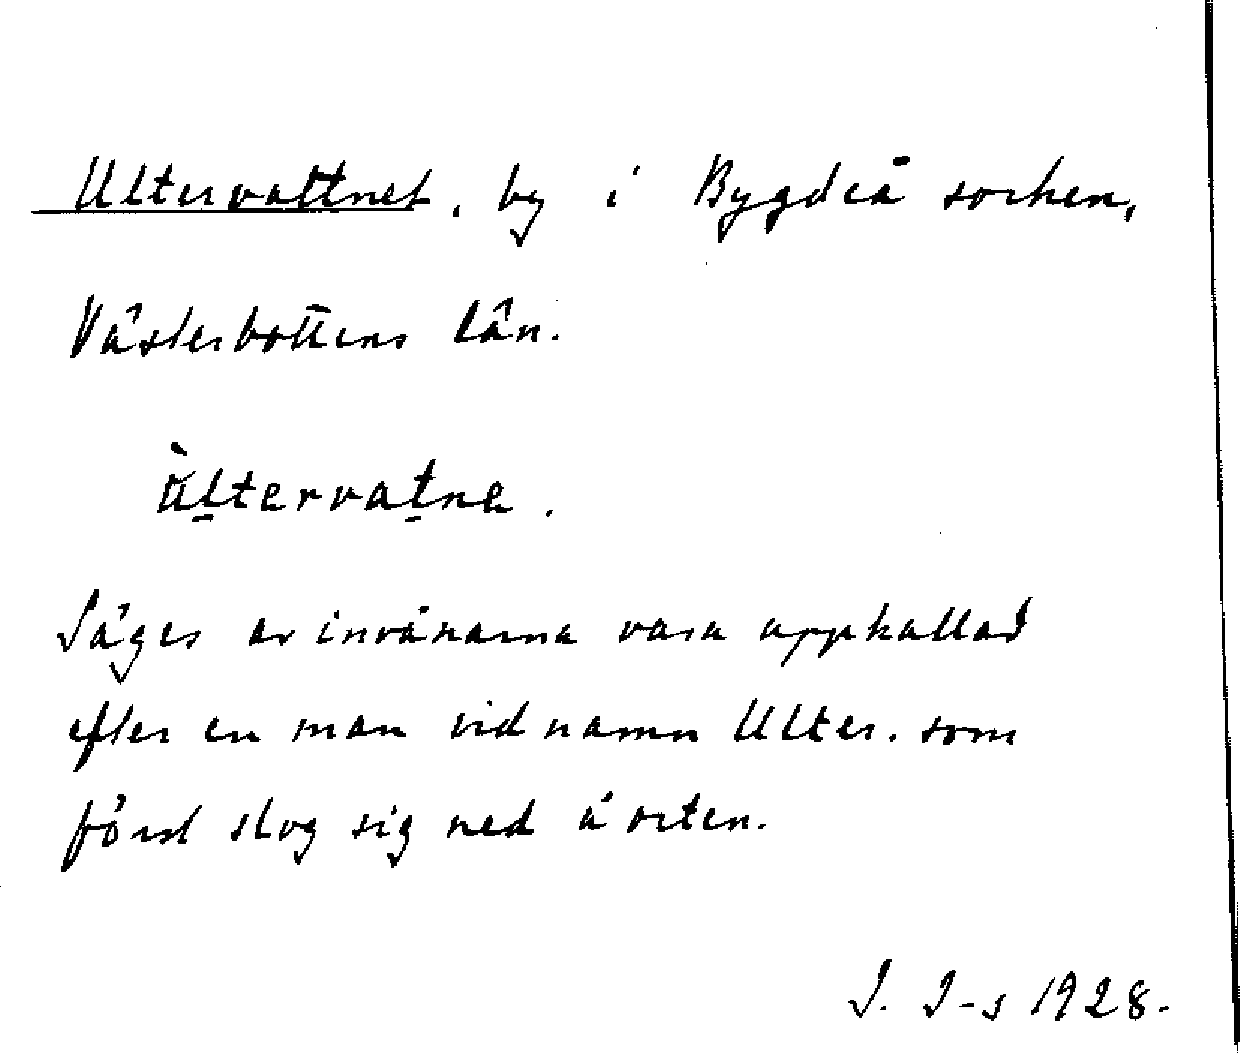 Ultervattnet, by i Bygdeå socken,
Västerbottens län.
ùltervatne.
Säges av invånarna vara uppkallad
efter en man vid namn Ulter, som
först slog sig ned å orten.
J. J-s 1928.